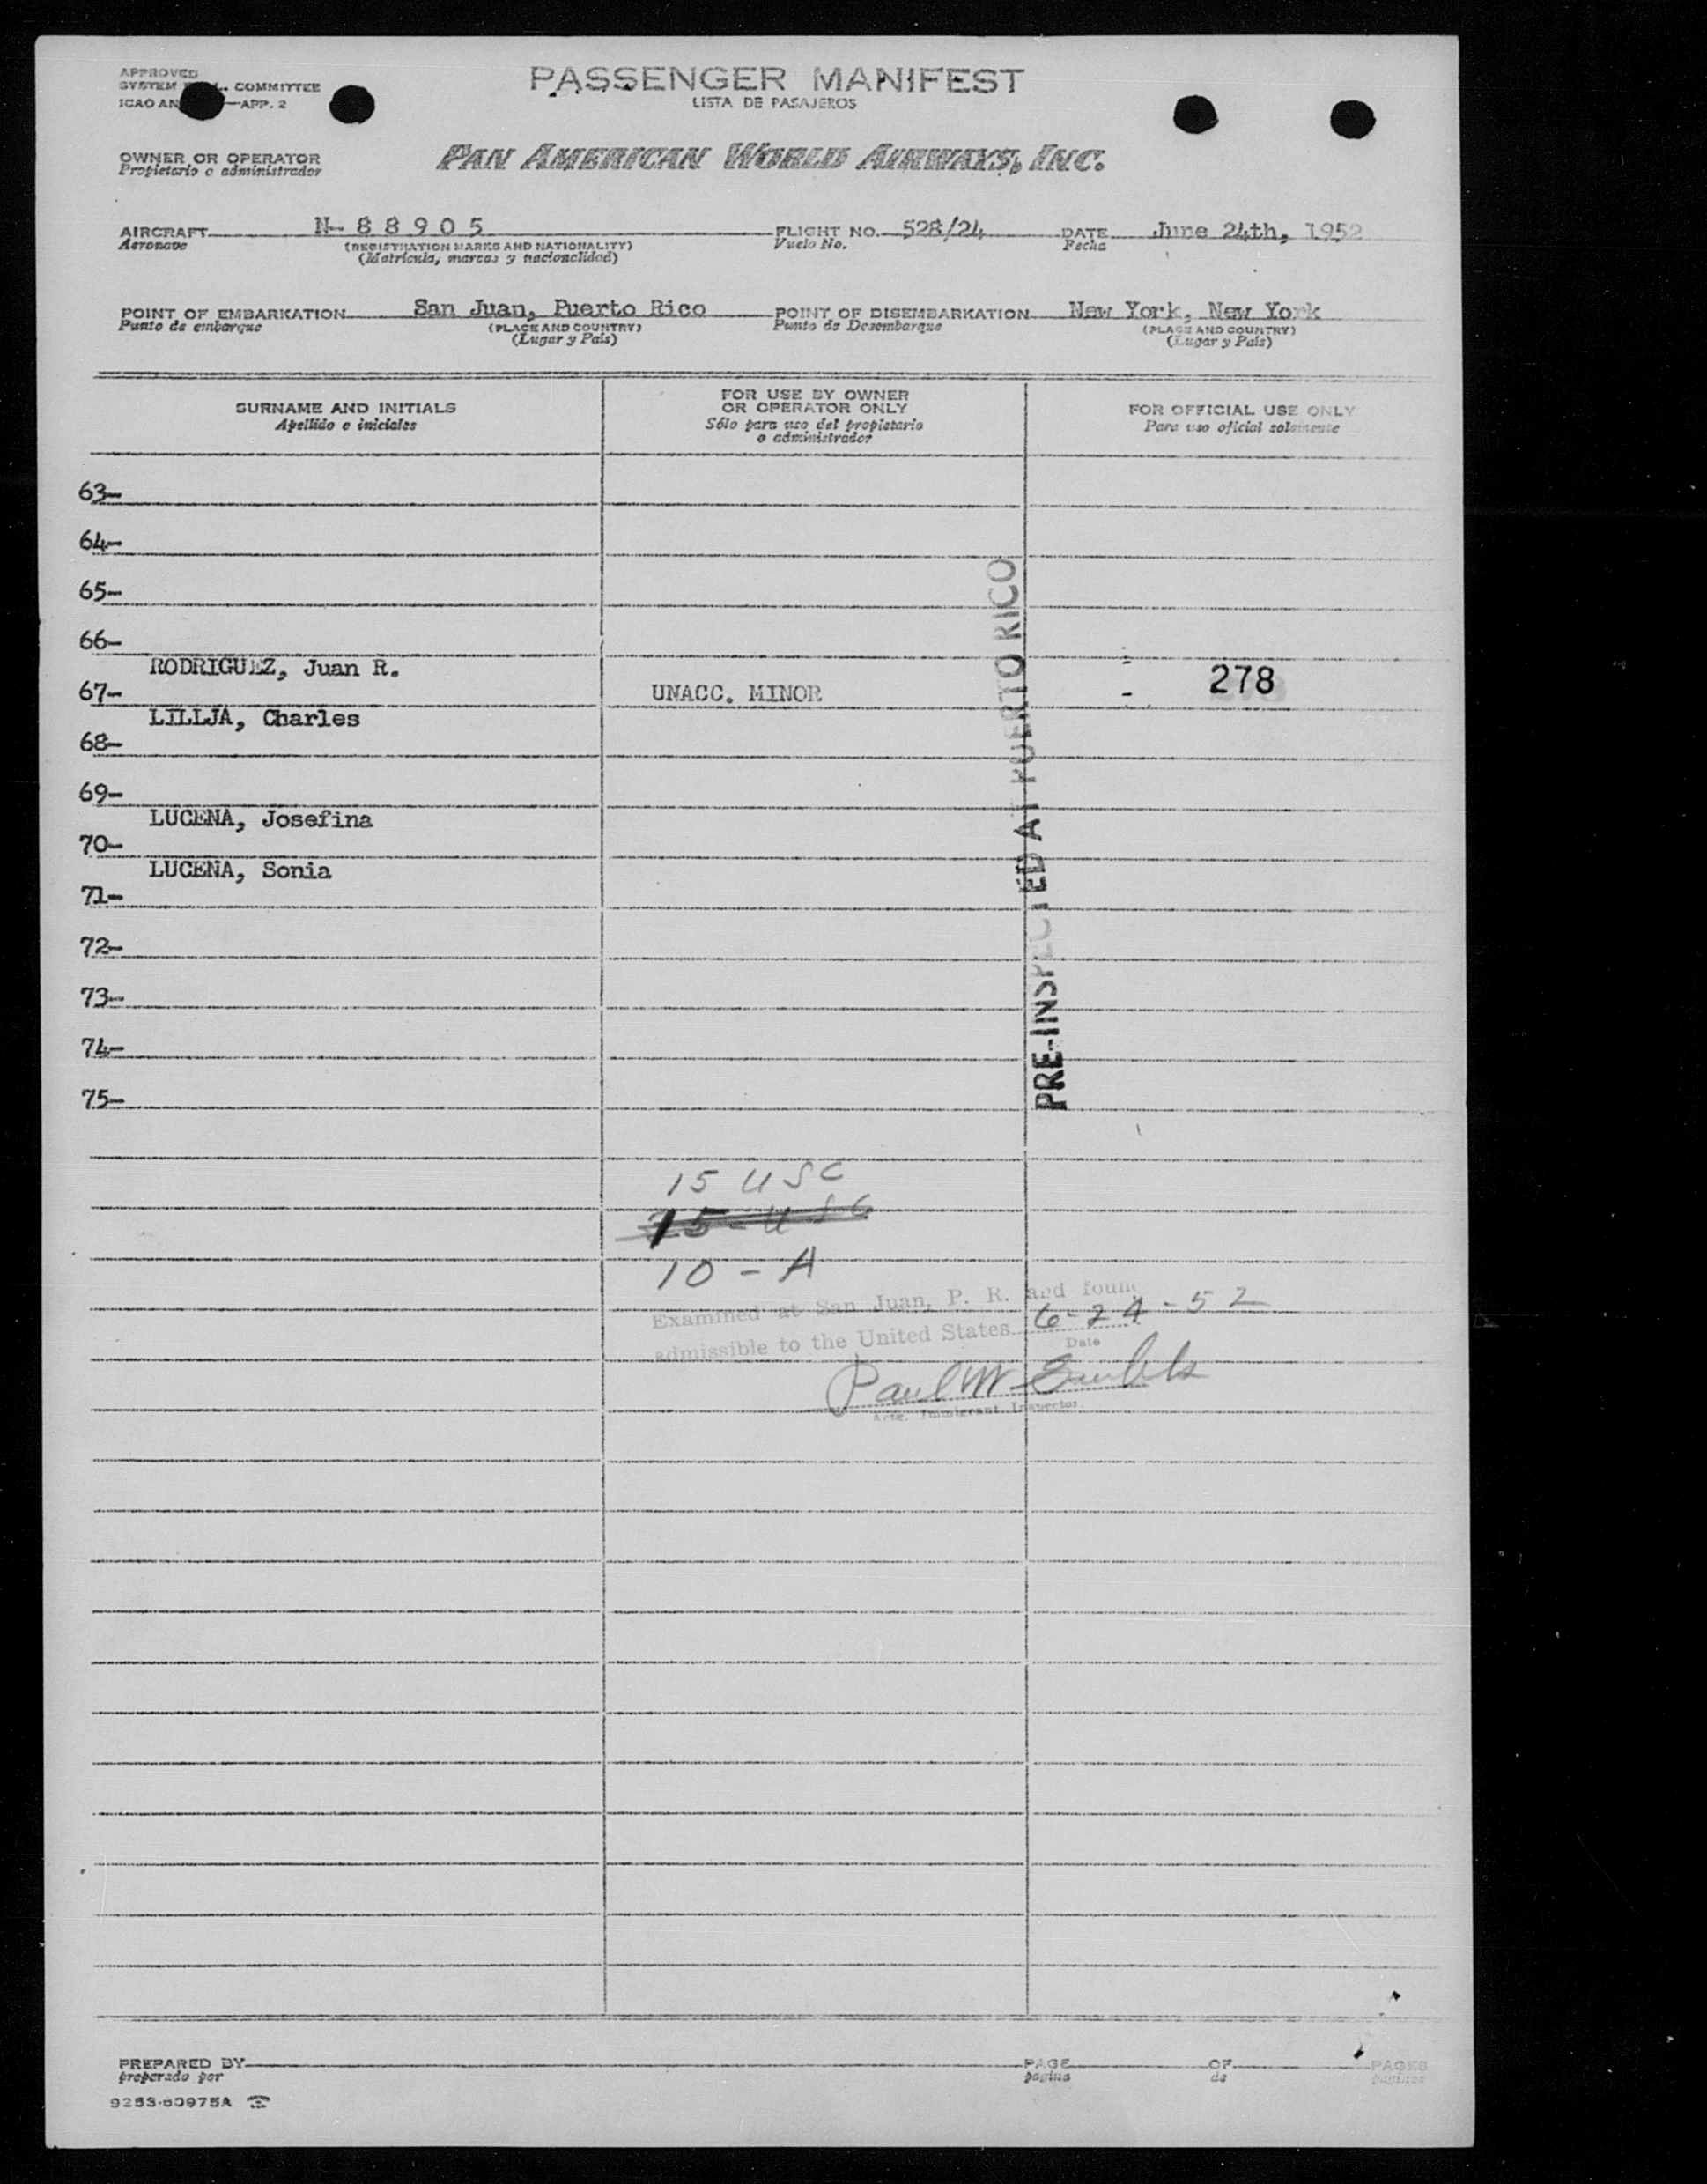 APPROVED
SYSTEM COMMITTEE
ICAO AN —APP. 2
PASSENGER MANIFEST
LISTA DE PASAJEROS
OWNER OR OPERATOR
Propietario o administrador
PAN AMERICAN WORLD AIRWAYS, INC.
AIRCRAFT N-88905 FLIGHT NO. 528/24 DATE June 24th, 1952
Aeronave (REGISTRATION MARKS AND NATIONALITY) Vuelo No. Fecha
(Matricula, marcas y nacionalidad)
POINT OF EMBARKATION San Juan, Puerto Rico POINT OF DISEMBARKATION New York, New York
Punto de embarque (PLACE AND COUNTRY) Punto de Desembarque (PLACE AND COUNTRY)
(Lugar y País) (Lugar y País)
SURNAME AND INITIALS
Apellido e iniciales
FOR USE BY OWNER
OR OPERATOR ONLY
Sólo para uso del propietario
o administrador
FOR OFFICIAL USE ONLY
Para uso oficial solamente
63-
64-
65-
66-
RODRIGUEZ, Juan R.
67- UNACC. MINOR - 278
LILLJA, Charles
68-
69-
LUCENA, Josefina
70-
LUCENA, Sonia
71-
72-
73-
74-
75-
PRE-INSPECTED AT PUERTO RICO
15 USC
15-USC
10-A
Examined at San Juan, P. R. and found
admissible to the United States 6-24-52
Date
Paul W
Immigrant Inspector
PREPARED BY PAGE OF PAGES
preparado por página de páginas
9253-60975A